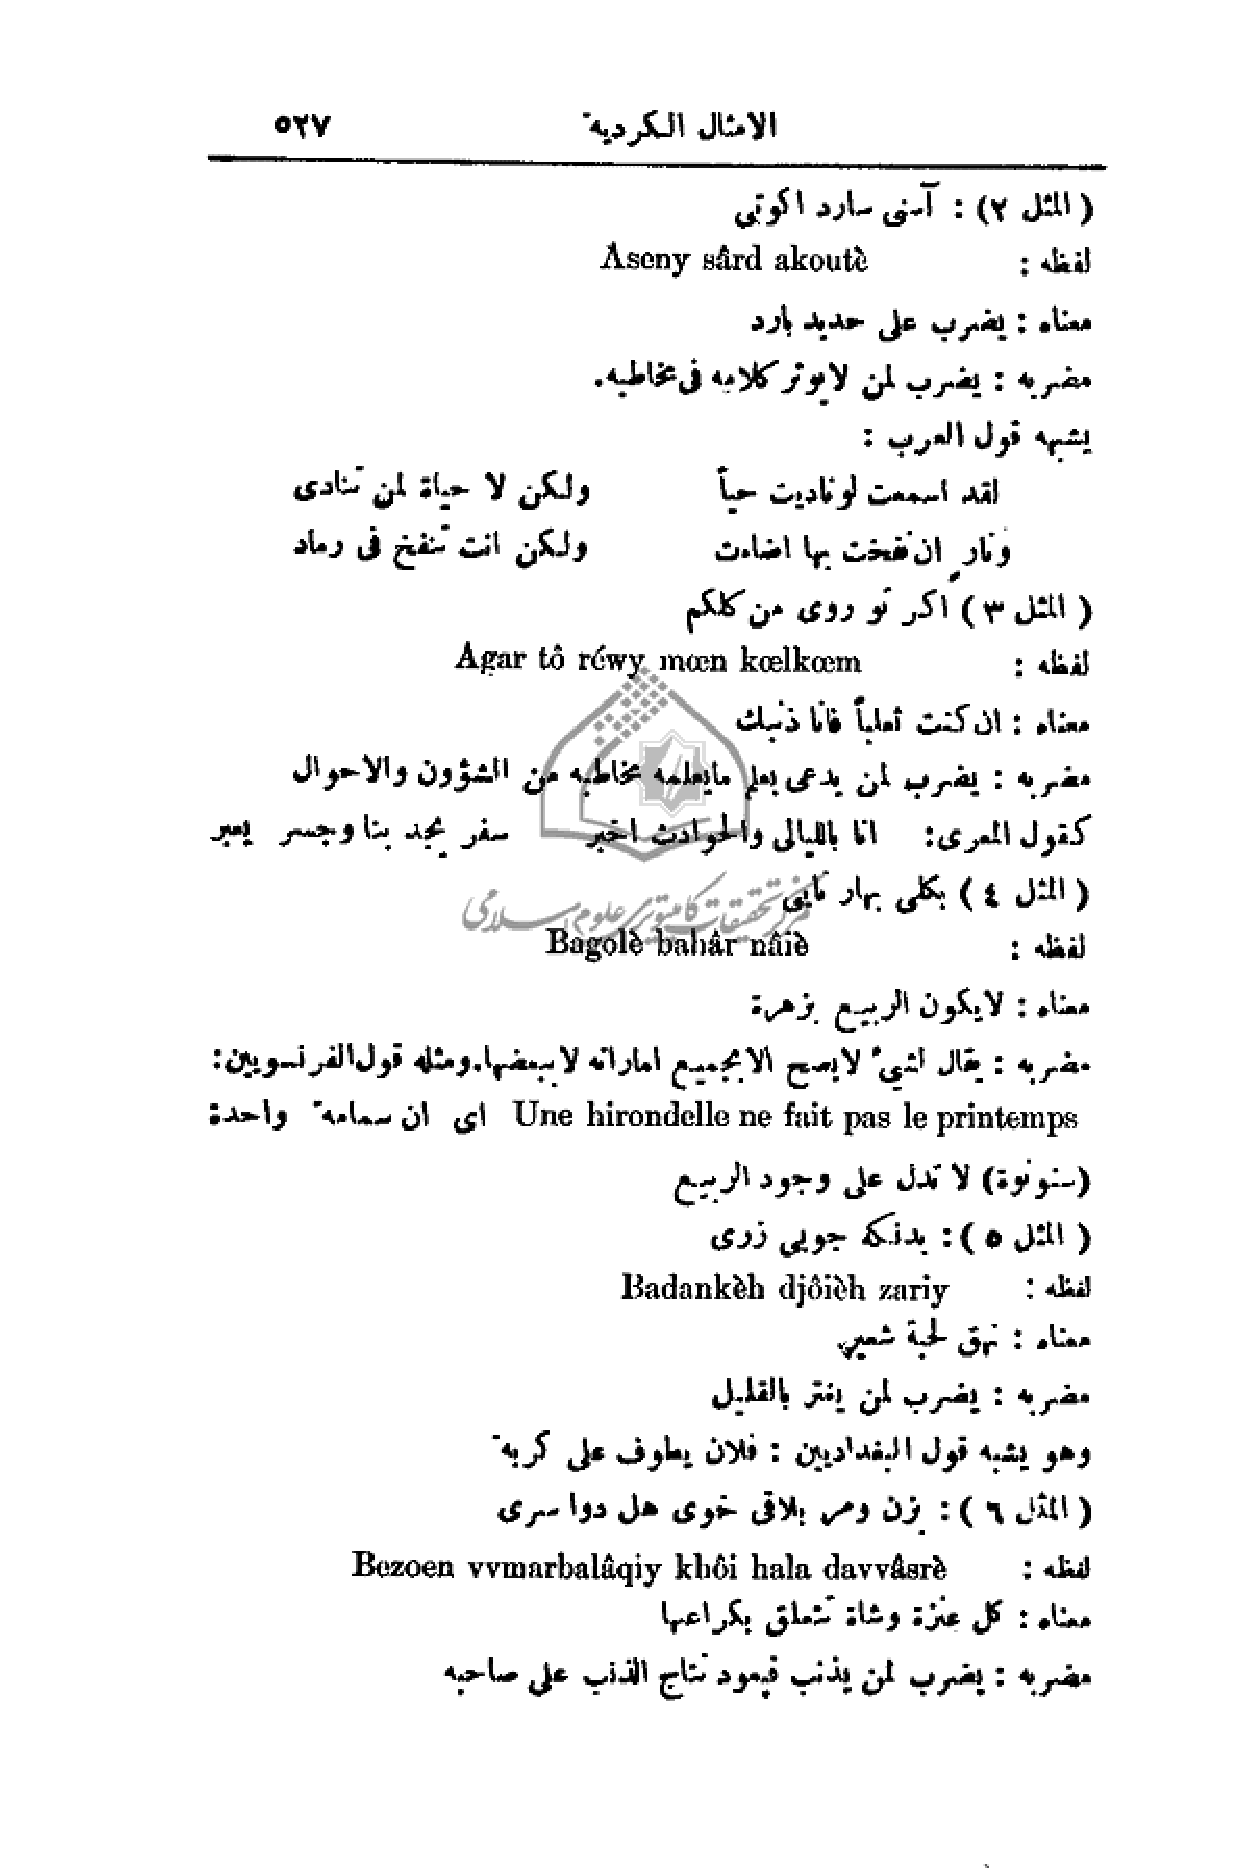 الامثال الكردية ٥٢٧
( المثل ٢) : آسنى سارد اكوتى
لفظه : Aseny sârd akoutè
معناه : يضرب على حديد بارد
مضربه : يضرب لمن لايوثر كلامه فى مخاطبه.
يشبهه قول العرب :
لقد اسمعت لو ناديت حياً ولكن لا حياة لمن تنادى
ونار ان نفخت بها اضاءت ولكن انت تنفخ فى رماد
( المثل ٣ ) اكر تو روى من كلكم
لفظه : Agar tô réwy mœn kœlkœm
معناه : ان كنت ثعلباً فانا ذنبك
مضربه : يضرب لمن يدعى بعلم مايعلمه مخاطبه من الشؤون والاحوال
كقول المعرى: انا بالليالى والحوادث اخبر سفر يجد بنا وجسر يعبر
( المثل ٤ ) بكلى بهار نايى
مركز تحقيقات كامپيوترى علوم اسلامى
لفظه : Bagolè bahâr nâiè
معناه : لايكون الربيع بزهرة
مضربه : يقال لشئ لايصح الا بجميع اماراته لا ببعضها.ومثله قول الفرنسويين:
Une hirondelle ne fait pas le printemps اى ان سمامة واحدة
(سنونوة) لا تدل على وجود الربيع
( المثل ٥ ) : بدنكه جويى زرى
لفظه : Badankèh djôièh zariy
معناه : نهق لحبة شعير
مضربه : يضرب لمن يغتر بالقليل
وهو يشبه قول البغداديين : فلان يطوف على كربة
( المثل ٦ ) : بزن ومر بلاقى خوى هل دوا سرى
لفظه : Bezoen vvmarbalâqiy khôi hala davvâsrè
معناه : كل عنزة وشاة تتعلق بكراعها
مضربه : يضرب لمن يذنب فيعود نتاج الذنب على صاحبه